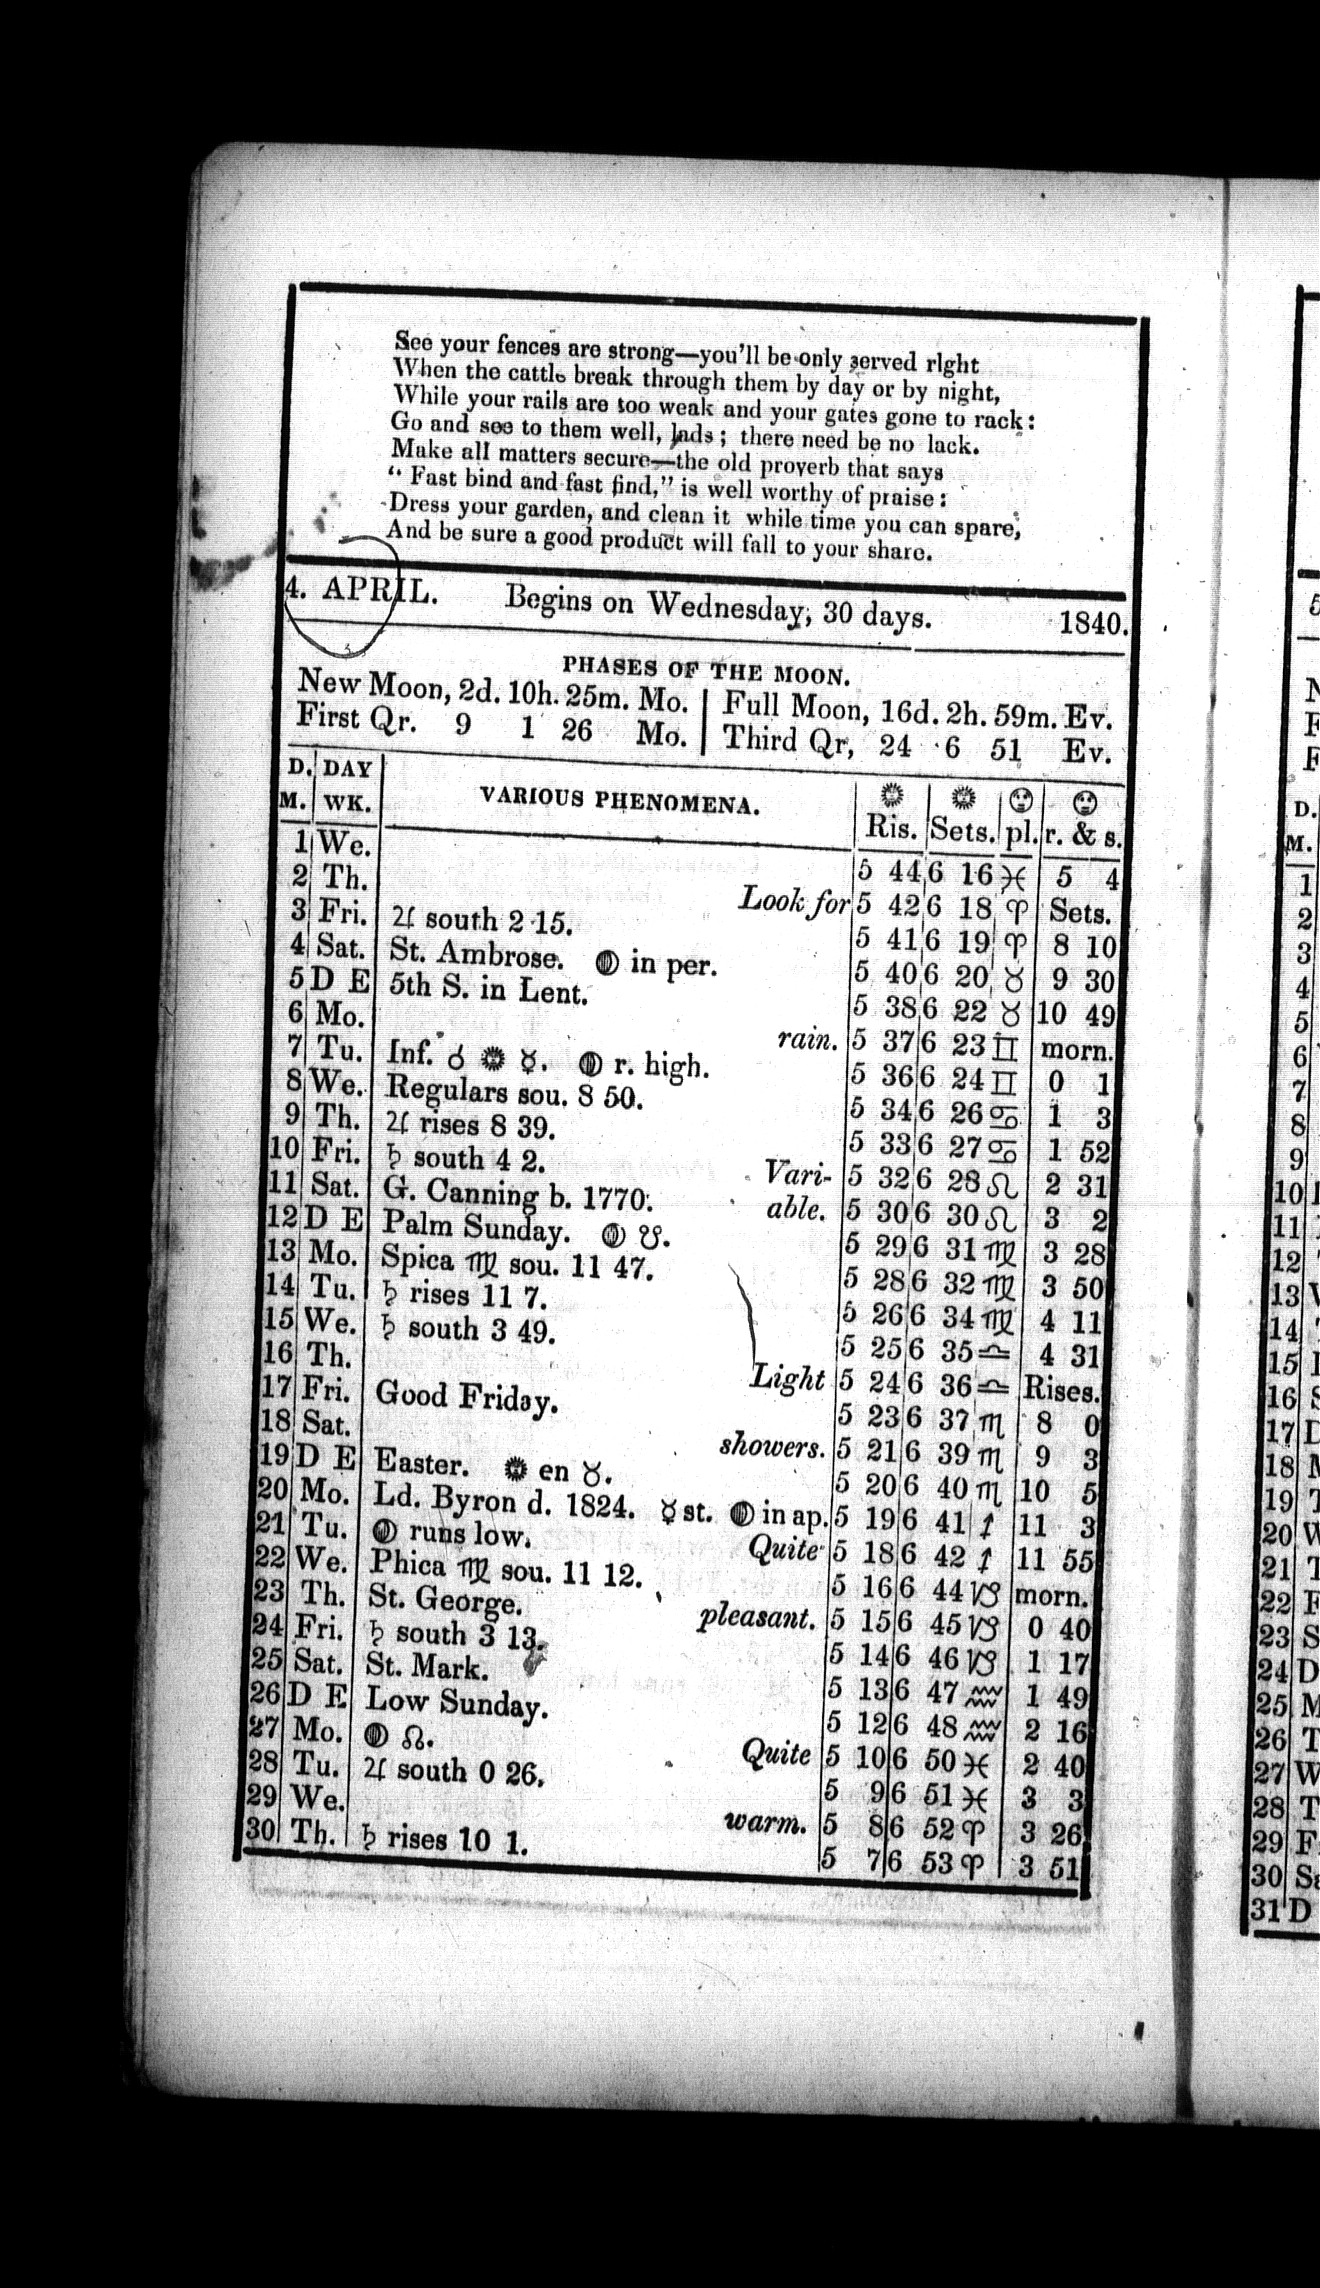 See your fences are strong—you'll be only served right
When the cattle break through them by day or by night,
While your rails are too weak and your gates gone to rack:
Go and see to them well, lads; there need be no lack.
Make all matters secure—the old proverb that says
“Fast bind and fast find,” is well worthy of praise:
Dress your garden, and clean it while time you can spare,
And be sure a good product will fall to your share.
4. APRIL. Begins on Wednesday, 30 days. 1840.
PHASES OF THE MOON.
New Moon, 2d. 10h. 25m. Mo. | Full Moon, 16d. 2h. 59m. Ev.
First Qr. 9 1 26 Mo. | Third Qr, 24 6 51 Ev.
D. M. | DAY WK. | VARIOUS PHENOMENA. | ☀ Ris. | ☀ Sets. | ☺ pl. | ☺ r. & s.
1 We. 5 44 6 16 ♓ 5 4
2 Th. Look for 5 42 6 18 ♈ Sets.
3 Fri. ♃ south 2 15. 5 41 6 19 ♈ 8 10
4 Sat. St. Ambrose. ☽ in per. 5 40 6 20 ♉ 9 30
5 D E 5th S. in Lent. 5 38 6 22 ♉ 10 49
6 Mo. rain. 5 37 6 23 ♊ morn.
7 Tu. Inf. ☌ ☀ ☿. ☽ r. high. 5 36 6 24 ♊ 0 1
8 We. Regulars sou. 8 50. 5 34 6 26 ♋ 1 3
9 Th. ♃ rises 8 39. 5 33 6 27 ♋ 1 52
10 Fri. ♄ south 4 2. Vari- 5 32 6 28 ♌ 2 31
11 Sat. G. Canning b. 1770. able. 5 30 6 30 ♌ 3 2
12 D E Palm Sunday. ☽ ☋. 5 29 6 31 ♍ 3 28
13 Mo. Spica ♍ sou. 11 47. 5 28 6 32 ♍ 3 50
14 Tu. ♄ rises 11 7. 5 26 6 34 ♍ 4 11
15 We. ♄ south 3 49. 5 25 6 35 ♎ 4 31
16 Th. Light 5 24 6 36 ♎ Rises.
17 Fri. Good Friday. 5 23 6 37 ♏ 8 0
18 Sat. showers. 5 21 6 39 ♏ 9 3
19 D E Easter. ☀ en ♉. 5 20 6 40 ♏ 10 5
20 Mo. Ld. Byron d. 1824. ☿ st. ☽ in ap. 5 19 6 41 ♐ 11 3
21 Tu. ☽ runs low. Quite 5 18 6 42 ♐ 11 55
22 We. Phica ♍ sou. 11 12. 5 16 6 44 ♑ morn.
23 Th. St. George. pleasant. 5 15 6 45 ♑ 0 40
24 Fri. ♄ south 3 13. 5 14 6 46 ♑ 1 17
25 Sat. St. Mark. 5 13 6 47 ♒ 1 49
26 D E Low Sunday. 5 12 6 48 ♒ 2 16
27 Mo. ☽ ☊. Quite 5 10 6 50 ♓ 2 40
28 Tu. ♃ south 0 26. 5 9 6 51 ♓ 3 3
29 We. warm. 5 8 6 52 ♈ 3 26
30 Th. ♄ rises 10 1. 5 7 6 53 ♈ 3 51